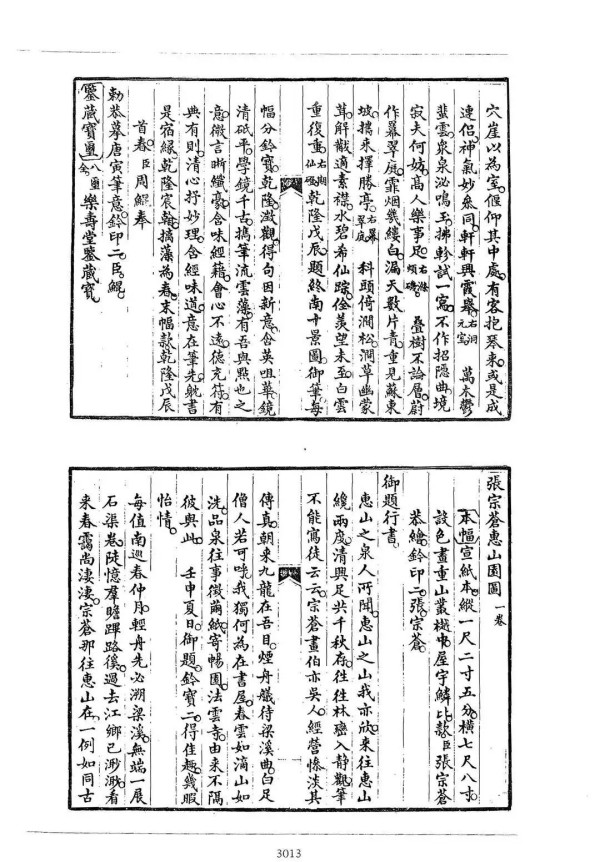 穴崖以為室偃仰其中處有客抱琴來或是成
連侶神氣妙參同軒軒興霞舉右洞元室 萬木鬱
蓝雲泉泉泌鳴玉拂軫試一寫不作招隱曲境
寂夫何妨高人樂事足右滌煩磯 疊樹不論層蔚
作羃翠庭霏烟幾縷白漏天數片青重見蘇東
坡攜來擇勝亭右羃翠庭 科頭倚澗松澗草幽蒙
茸觧散適素襟水碧希仙踪佺羨望未至白雲
重復重右期仙磴 乾隆戊辰題終南十景圖御筆每
幅分鈐寶乾隆澂觀得句因新意含英咀華鏡
清砥平學鏡千古摛筆流雲藻有吾與點也之
意微言晰纎豪含味經籍會心不遠德充符有
典有則清心抒妙理含經味道意在筆先躭書
是宿緣乾隆宸翰摛藻為春末幅款乾隆戊辰
首春臣周鯤奉
勅恭摹唐寅筆意鈐印二臣鯤
鑒藏寶璽八璽全樂壽堂鑒藏寶
張宗蒼惠山園圖一卷
本幅宣紙本縱一尺二寸五分橫七尺八寸
設色畫重山叢樾中屋宇鱗比款臣張宗蒼
恭繪鈐印二張宗蒼
御題行書
惠山之泉人所聞惠山之山我亦欣來往惠山
纔兩度清興足共千秋存往往林巒入靜觀筆
不能寫徒云云宗蒼畫伯亦吳人經營慘淡其
傳真朝來九龍在吾目煙舟艤待梁溪曲白足
僧人若可呼我獨何為在書屋春雲如滃山如
洗品泉往事徵繭紙寄暢園法雲章由來不隔
彼與此 壬申夏日御題鈐寶二得佳趣幾暇
怡情
每值南巡春仲月輕舟先必溯梁溪無端一展
石渠卷陡憶羣瞻蹕路徯過去江鄉已渺渺看
來春靄尚淒淒宗蒼那往惠山在一例如同古
3013